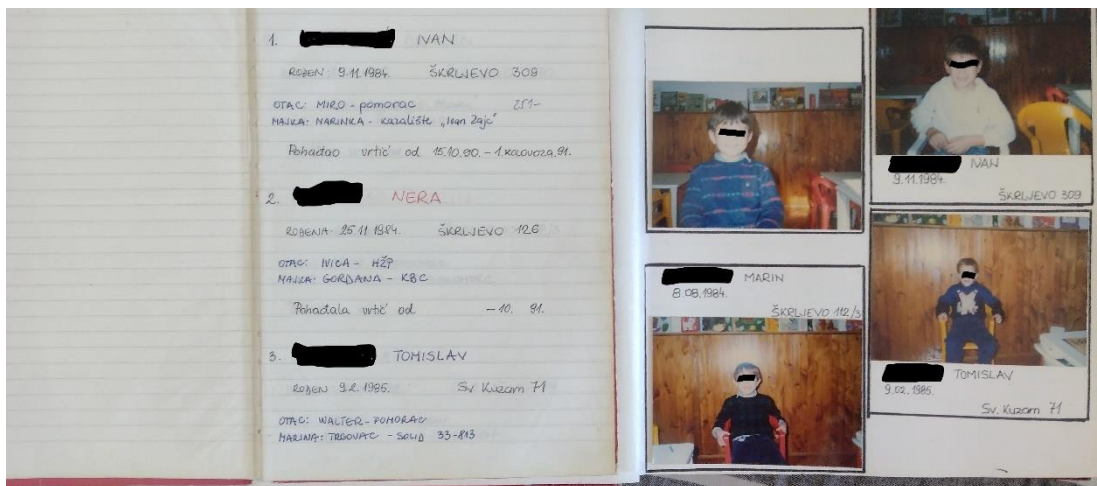 1. IVAN
ROĐEN: 9.11.1984. ŠKRLJEVO 309
OTAC: MIRO - pomorac 251-
MAJKA: MARINKA - kazalište „Ivan Zajc"
Pohađao vrtić od 15.10.90. - 1.kolovoza,91.
2. NERA
ROĐENA: 25.11.1984. ŠKRLJEVO 126
OTAC: IVICA - HŽP
MAJKA: GORDANA - KBC
Pohađala vrtić od - 10. 91.
3. TOMISLAV
ROĐEN 9.2.1985. Sv. Kuzam 71
OTAC: WALTER - POMORAC
MARINA: TRGOVAC - SOLID 33-813
MARIN
8.08.1984.
ŠKRLJEVO 112/3
IVAN
9.11.1984.
ŠKRLJEVO 309
TOMISLAV
9.02.1985.
Sv. Kuzam 71